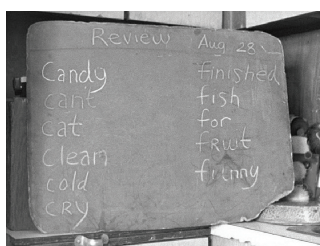 Review Aug 28
Candy
can't
cat
Clean
cold
CRY
finished
fish
for
fRuit
funny